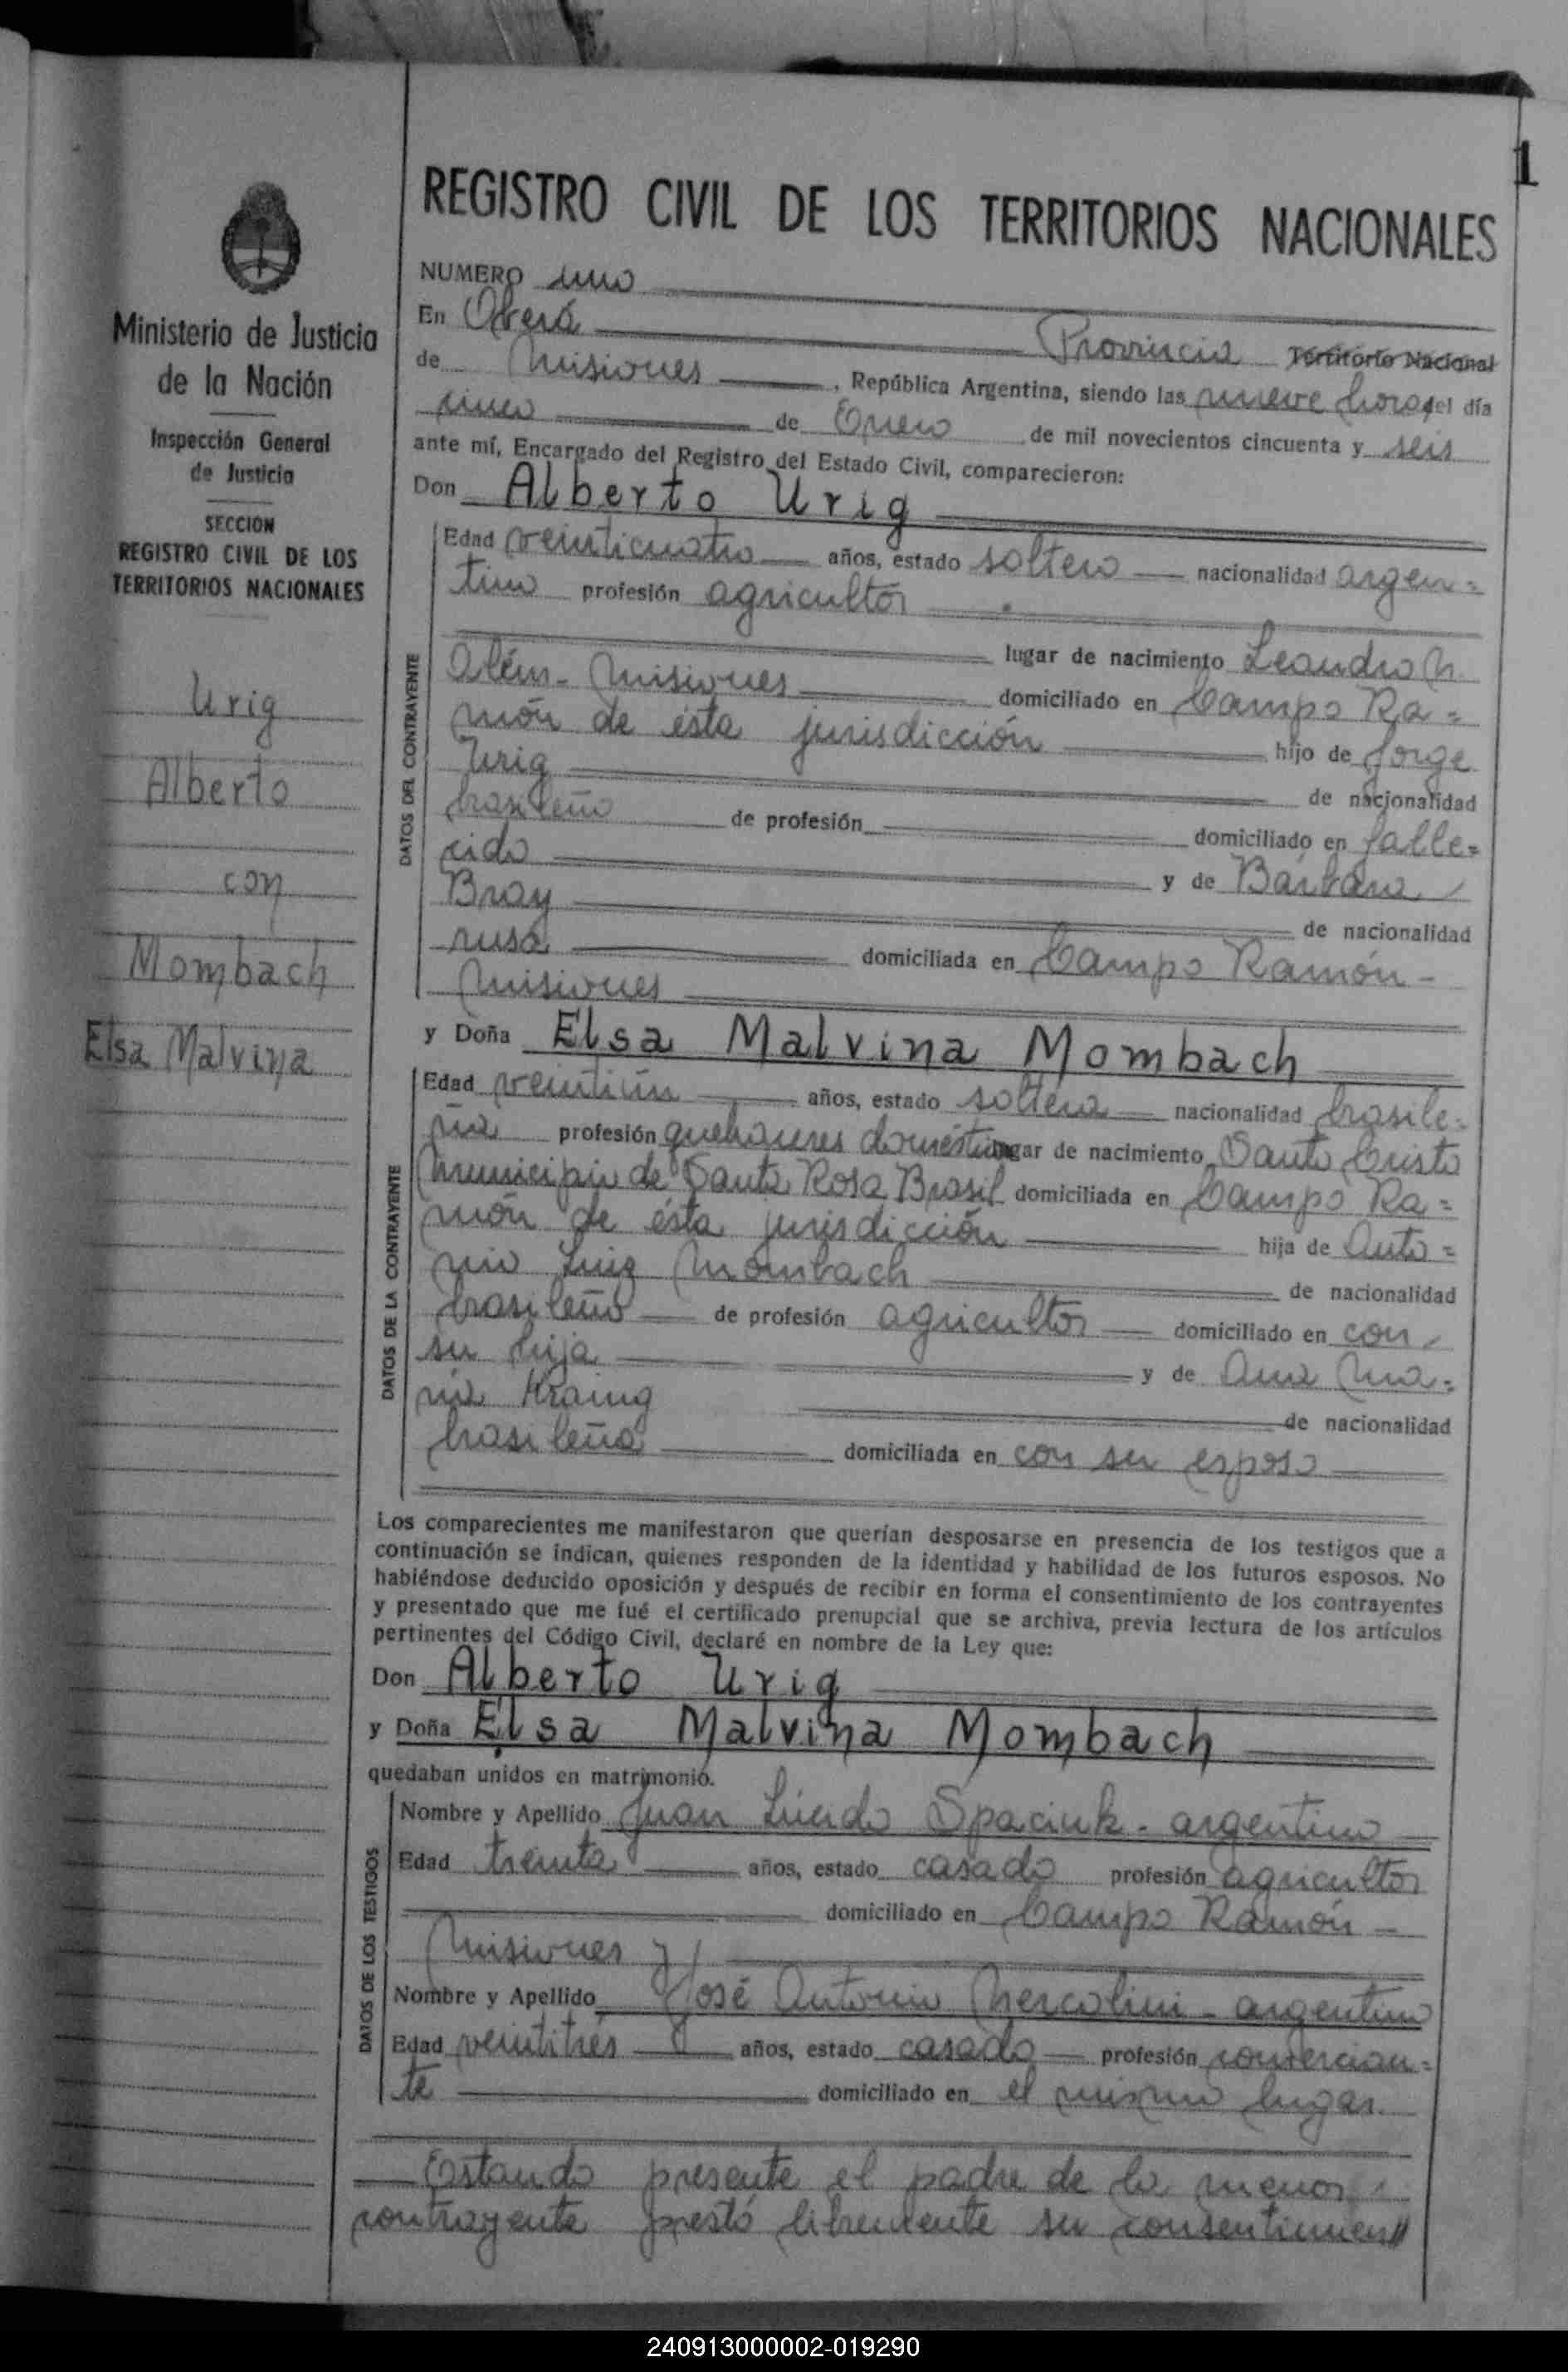 1
REGISTRO CIVIL DE LOS TERRITORIOS NACIONALES
Ministerio de Justicia
de la Nación
Inspección General
de Justicia
SECCION
REGISTRO CIVIL DE LOS
TERRITORIOS NACIONALES
Urig
Alberto
con
Mombach
Elsa Malvina
NUMERO uno
En Oberá Provincia Territorio Nacional
de Misiones, República Argentina, siendo las nueve horas del día
cinco de Enero de mil novecientos cincuenta y seis
ante mí, Encargado del Registro del Estado Civil, comparecieron:
Don Alberto Urig
DATOS DEL CONTRAYENTE
Edad veinticuatro años, estado soltero nacionalidad argen=
tino profesión agricultor
lugar de nacimiento Leandro N.
Além - Misiones domiciliado en Campo Ra=
món de ésta jurisdicción hijo de Jorge
Urig de nacionalidad
brasileño de profesión domiciliado en falle=
cido y de Bárbara
Bray de nacionalidad
rusa domiciliada en Campo Ramón -
Misiones
y Doña Elsa Malvina Mombach
DATOS DE LA CONTRAYENTE
Edad veintiún años, estado soltera nacionalidad brasile=
ña profesión quehaceres domésticos lugar de nacimiento Santo Cristo
Municipio de Santa Rosa Brasil domiciliada en Campo Ra=
món de ésta jurisdicción hija de Anto=
nio Luiz Mombach de nacionalidad
brasileño de profesión agricultor domiciliado en con
su hija y de Ana Ma=
ría de nacionalidad
brasileña domiciliada en con su esposo
Los comparecientes me manifestaron que querían desposarse en presencia de los testigos que a
continuación se indican, quienes responden de la identidad y habilidad de los futuros esposos. No
habiéndose deducido oposición y después de recibir en forma el consentimiento de los contrayentes
y presentado que me fué el certificado prenupcial que se archiva, previa lectura de los artículos
pertinentes del Código Civil, declaré en nombre de la Ley que:
Don Alberto Urig
y Doña Elsa Malvina Mombach
quedaban unidos en matrimonio.
DATOS DE LOS TESTIGOS
Nombre y Apellido Juan Spaciuk - argentino
Edad treinta años, estado casado profesión agricultor
domiciliado en Campo Ramón -
Misiones y
Nombre y Apellido José Antonio Mercolini - argentino
Edad veintitrés años, estado casado profesión comercian=
te domiciliado en el mismo lugar.
Estando presente el padre de la menor
contrayente prestó libremente su consentimien//
240913000002-019290